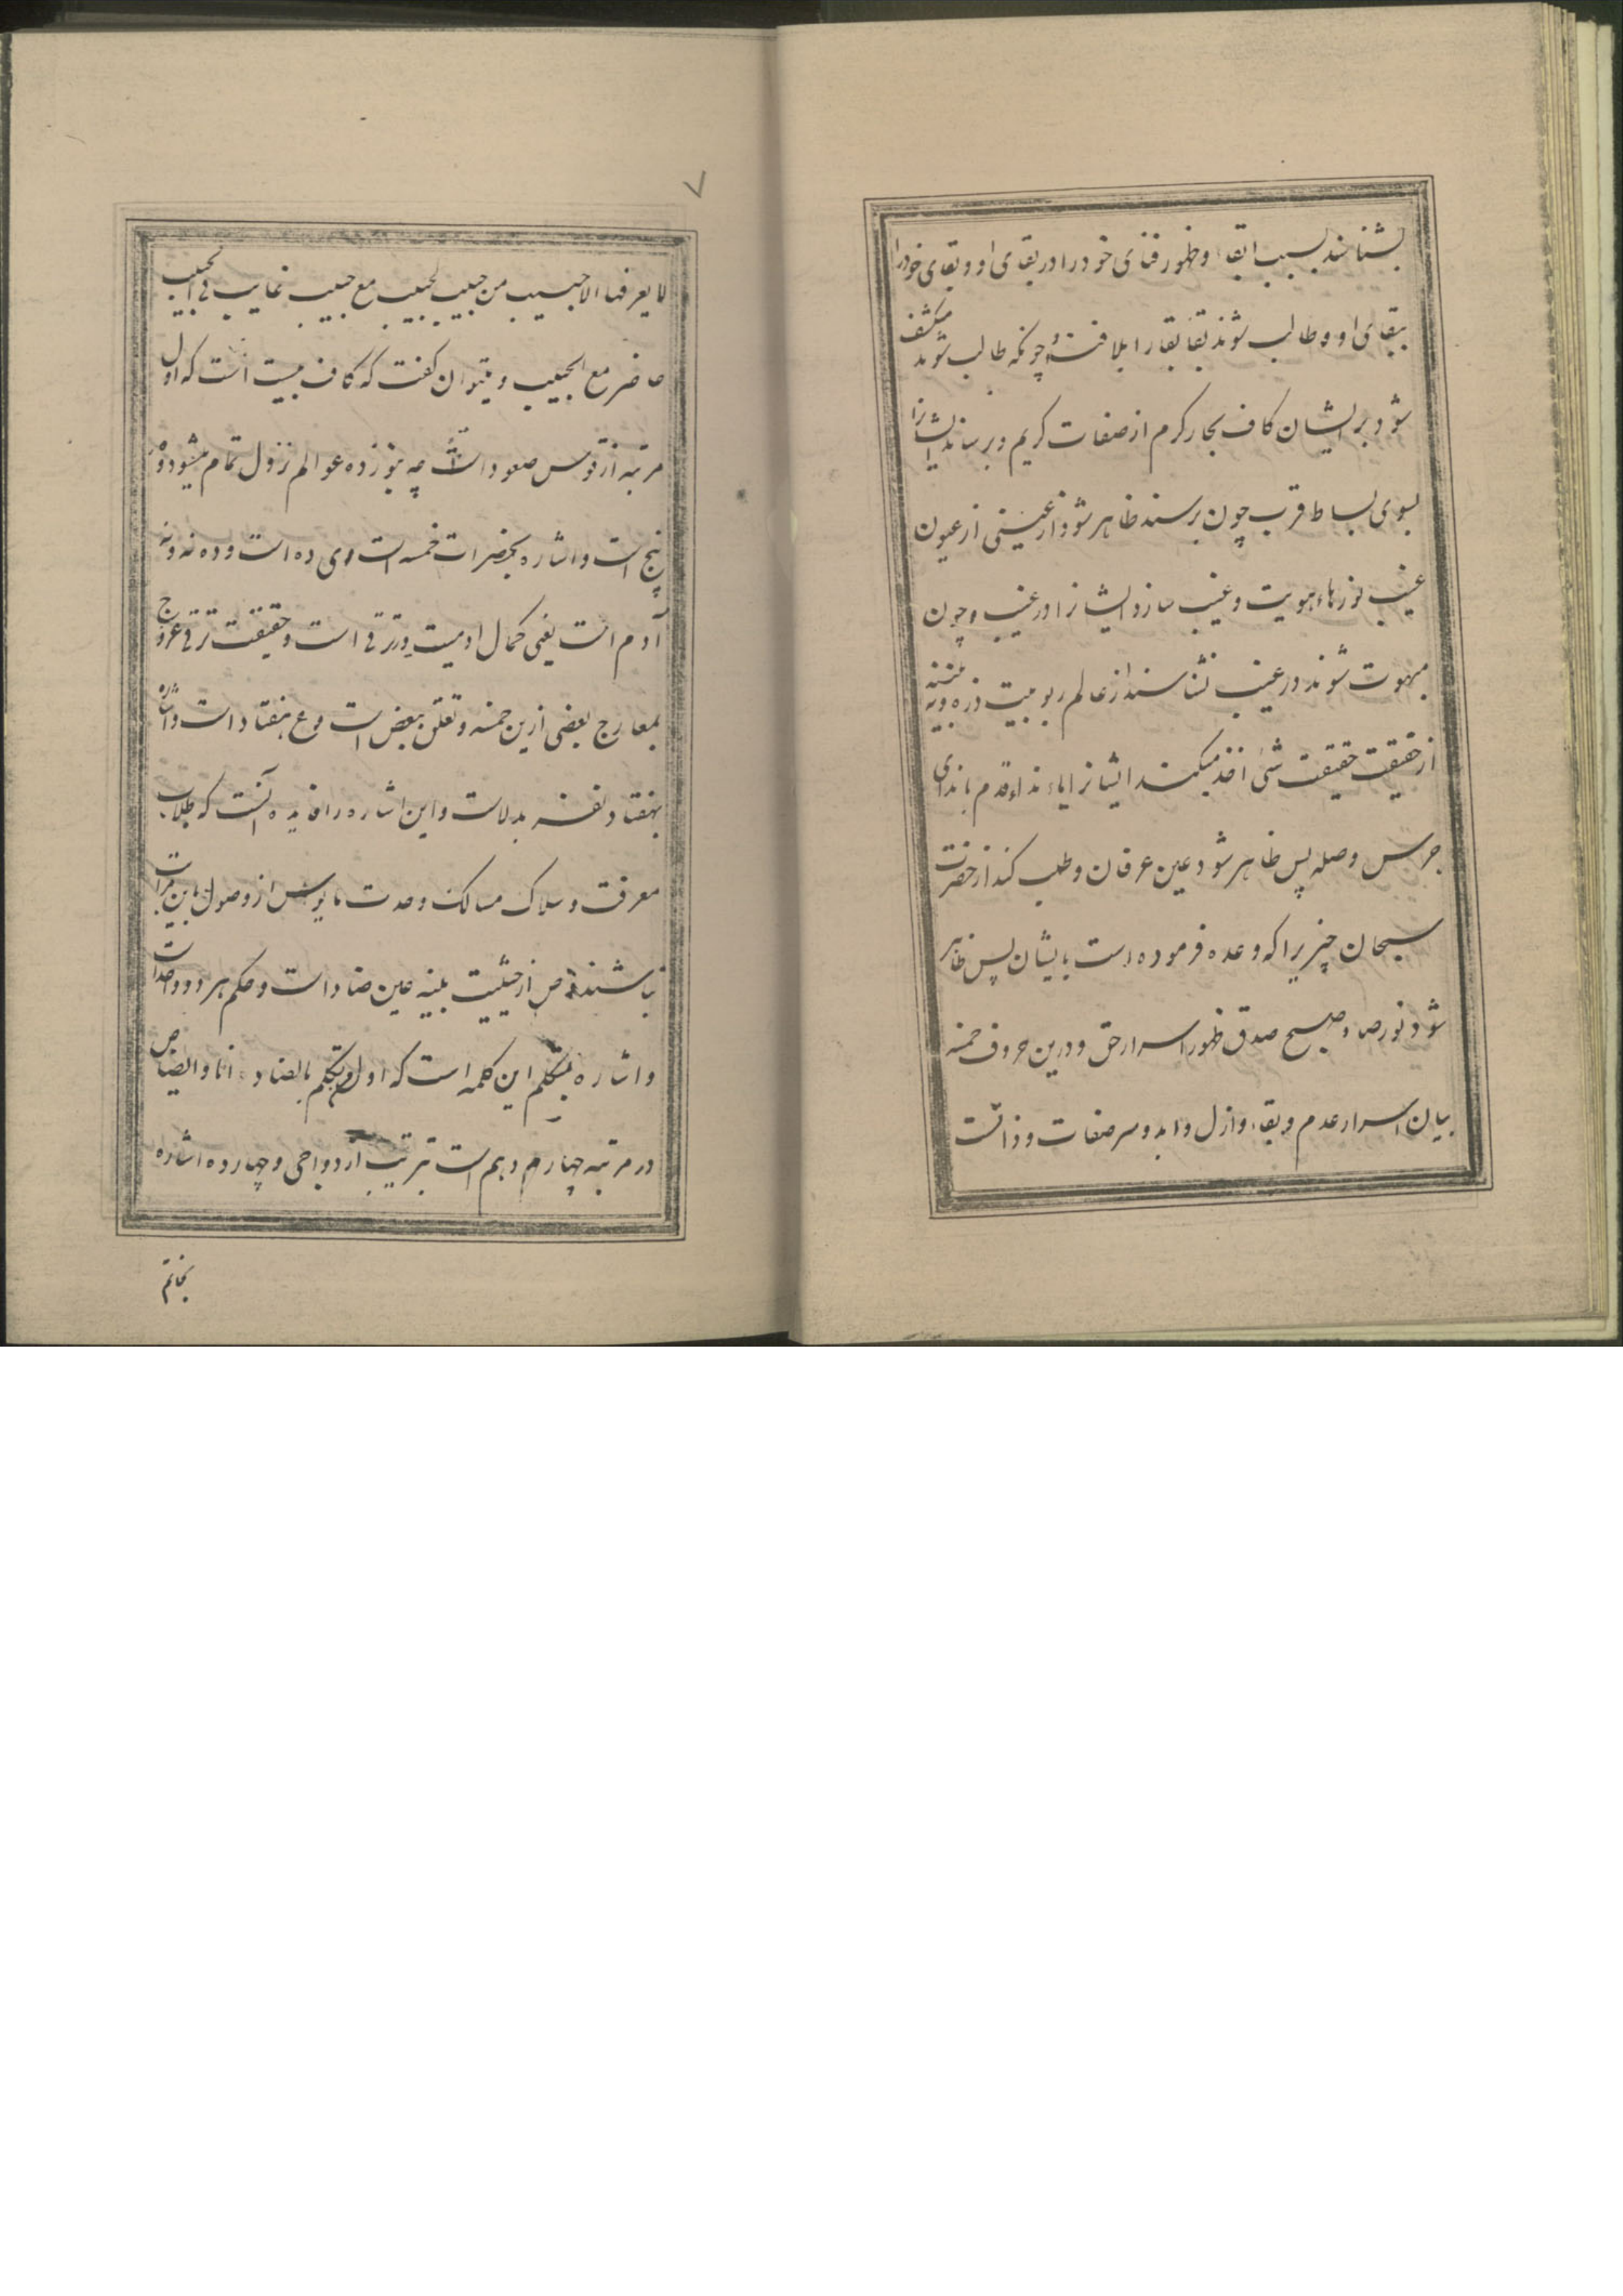 بشناسند بسبب ابقا او ظهور فنای خود را در بقای او و بقای خود را
ببقای او و طالب شوند بقا بقا را بلا فتنه و چونکه طالب شوند منکشف
شود بر ایشان کاف بحار کرم از صفات کریم و برساند ایشانرا
بسوی بساط قرب چون برسند ظاهر شود از غیبی از عیون
غیب نور هاء هویت و غیب سازد ایشانرا در غیب و چون
مبهوت شوند در غیب نشناسند از عالم ربوبیت ذره و نه بینند
از حقیقت حقیقت شئ اخذ میکند ایشانرا یاء نداء قدم با ندای
جرس وصله پس ظاهر شود عین عرفان و طلب کند از حضرت
سبحان چیزیرا که وعده فرموده است بایشان پس ظاهر
شود نور صاد صبح صدق ظهور اسرار حق و درین حروف خمسه
بیان اسرار عدم و بقاء و ازل و ابد و سر صفات و ذاتست
۷
لا یعرفها الا حبیب من حبیب لحبیب مع حبیب غایب فی الحبیب
حاضر مع الحبیب و میتوان گفت که کاف بیست است که اول
مرتبه از قوس صعود است چه بنوزده عوالم نزول تمام میشود و ه
پنج است و اشاره بحضرات خمسه است و ی ده است و ده نه و نه
آدم است یعنی کمال ادمیت در ترقی است و حقیقت ترقی عروج
بمعارج بعضی ازین خمسه و تعلق ببعض است و ع هفتاد است و اشاره
بهفتاد نفسه بدلات و این اشاره را فایده آنست که طلاب
معرفت و سلاک مسالک وحدت مایوس از وصول باین مراتب
نباشند و ص از حیثیت بلینه عین ضاد است و حکم هر دو واحد است
و اشاره بمتکلم این کلمه است که اول من تکلم بالضاد انا و ایضا ص
در مرتبه چهار دهم است بترتیب ازدواجی و چهارده اشاره
بخاتم